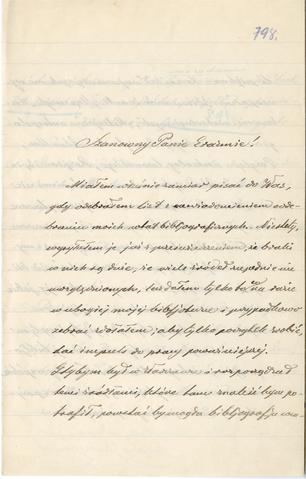 798.
Szanowny Panie Erazmie!
Miałem właśnie zamiar pisać do Was,
gdy odebrałem list z zawiadomieniem ode-
braniu moich notat bibliograficznych. Niestety,
wysyłałem je już z przeświadczeniem, że braki
w nich są duże, że wiele źródeł zupełnie nie
uwzględnionych, bo dałem tylko to, co na razie
w ubogiej mojej bibljotece i przypadkowo
zebrać zdołałem, aby tylko początek zrobić,
dać impuls do pracy poważniejszej.
Gdybym był w Warszawie i rozporządzał
temi źródłami, które tam znaleźć bym po-
trafił, powstać by mogła bibliografja